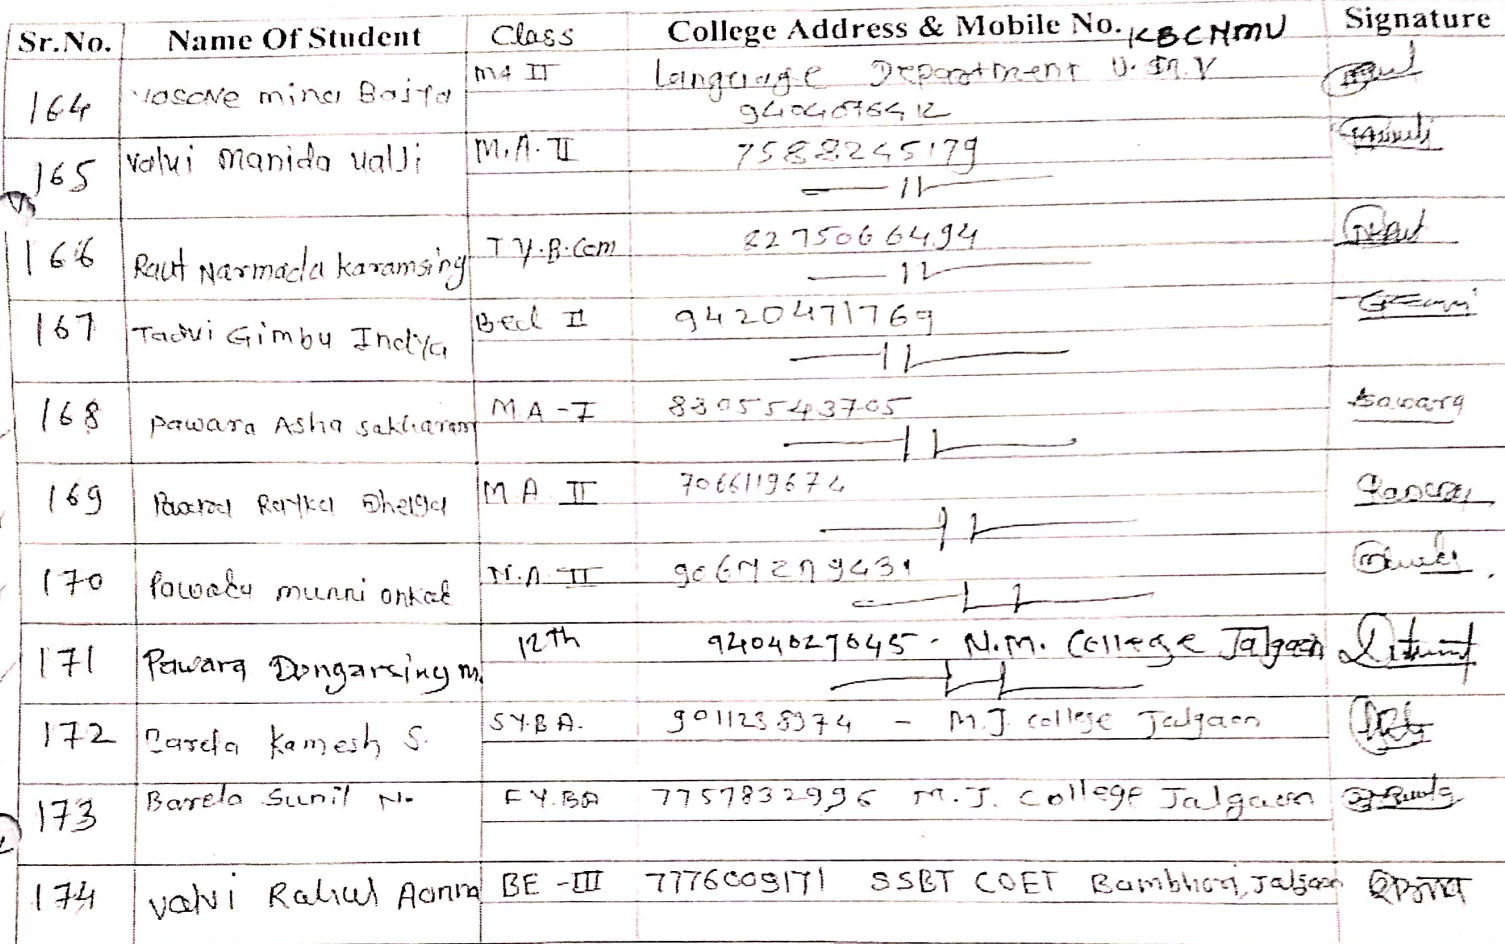 Sr.No. Name Of Student Class College Address & Mobile No. KBCNMU Signature
164 vasave mina Basta MA II Language Department U. M. V
9404076412
165 Valvi Manida Valji M.A. II 7588245179
—11—
166 Raut Narmada Karamsing T Y.B.Com 8275066494
—11—
167 Tadvi Gimbu Indya Bed II 9420471769
—11—
168 pawara Asha sakharam MA-I 8305543705 pawara
—11—
169 Rayka M A II 7066119674
—11—
170 munni onkar M.A. II
—11—
171 Pawara Dongarsing M. 12th 9404027645 - N.M. College Jalgaon
—11—
172 Barela Kamesh S. S.Y.B.A. 9011238974 - M.J. college Jalgaon
173 Barela Sunil N. F Y. BA 7757832996 M.J. College Jalgaon
174 valvi Rahul BE-III 7776009171 SSBT COET Bambhori, Jalgaon